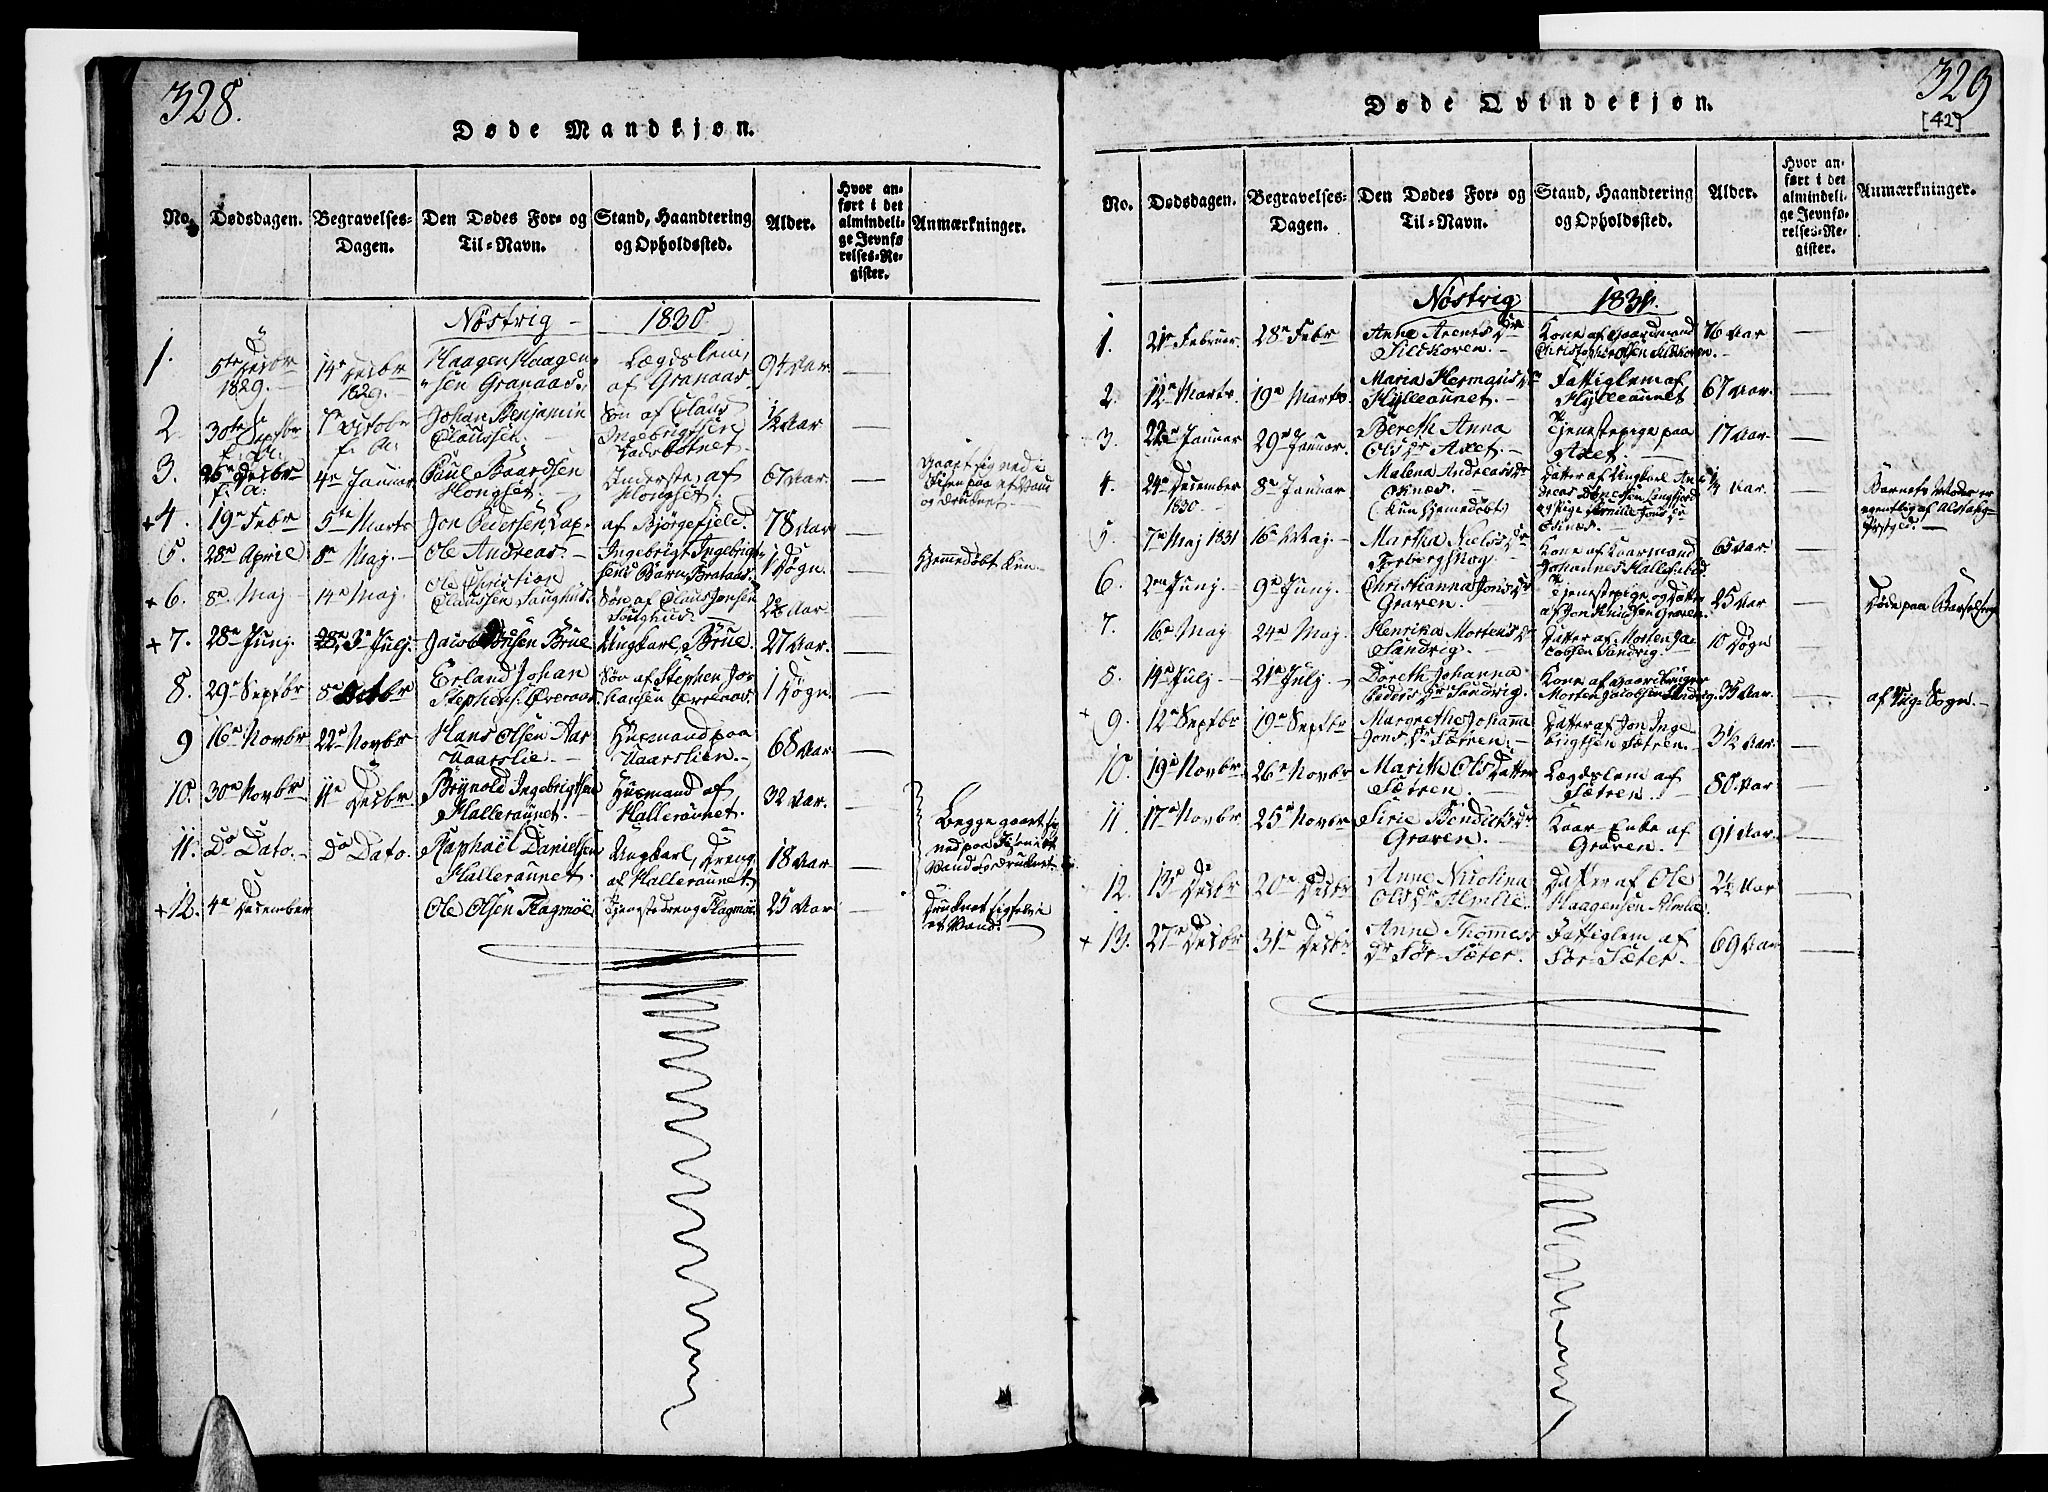 328.
Døde Mandkjøn.
No. Dødsdagen. Begravelses-Dagen. Den Dødes For- og Til-Navn. Stand, Haandtering og Opholdssted. Alder. Hvor anført i det almindelige Jevnførelses-Register. Anmærkninger.
Nöstvig 1830
1. 5te Decbr 1829. 14e Decbr 1829. Haagen Haagensen Granaas. Lægdslem af Granaas 94 Aar —
2. 30te Septbr f. A. 7e Octobr f. A. Johan Benjamin Claussen Søn af Claus Ingebrigtsen ½ Aar —
3. 26e Decbr f. A. 4e Januar Paul Baardsen Hongset. Inderste af Hongset. 67 Aar. — Gaaet sig ned i Isen paa et Vand og druknet.
+ 4. 19e Febr 5te Marts Jon Pedersen, Lap. af Bjørgefjeld. 78 Aar —
5. 28e April 8e Maj. Ole Andreas. — Ingebrigt Ingebrigtsens Barn, Brataas. 1 Døgn. — Hjemmedøbt kun
+ 6. 8e Maj 14e Maj Ole Christian Claussen Saughus. Søn af Claus Jonsen Saughus. Aar —
+ 7. 28e Junj. 3e Julj. Jacob Olsen Brue Ungkarl, Brue. 27 Aar. —
8. 29e Septbr 8e Octbr Erland Johan Stephens. Øveraas. Søn af Stephen Johansen Øveraas. 1 Døgn. —
9 16e Novbr 22e Novbr Hans Olsen Aarslie. — Huusmand paa Aarslien. — 68 Aar —
10. 30e Novbr 11e Decbr Brynold Ingebrigtsen Halleraunet. — Huusmand af Halleraunet. 32 Aar. — Begge gaaet sig ned paa Isen i et Vand & druknet.
11. Do Dato. — Do Dato. Raphaël Danielsen Halleraunet. Ungkarl, Dreng af Halleraunet. 18 Aar —
+ 12. 4e December Ole Olsen Flagmoe. Tjenestedreng Flagmoe. 25 Aar — Druknet sig selv i et Vand.
329
[42]
Døde Qvindekjøn.
No. Dødsdagen. Begravelses-Dagen. Den Dødes For- og Til-Navn. Stand, Haandtering og Opholdssted. Alder. Hvor anført i det almindelige Jevnførelses-Register. Anmærkninger.
Nöstvig 1831.
1. 21e Februar. 28e Febr Anne Arents Dr Sildkoren. — Kone af Gaardmand Christopher Olsen Sildkoren. — 76 Aar —
2. 12e Marts. 19e Marts. Maria Hermans Dr Hylleaunet. — Fattiglem af Hylleaunet 67 Aar. —
3. 22e Januar 29e Januar. Bereth Anna Ols Dr Axet. — Tjenestepige paa Axet. — 17 Aar. —
4. 24e December 1830 8e Januar Malena Andreas Dr Osnæs. (kun hjemmedøbt) Datter af Ungkarl Andreas og Pige Osnæs. — Aar. — Barnets Moder er egentlig af Præstegjed. —
5. 7e Maj 1831 16e Maj. — Martha Niels Dr Kone af Kaarmand Johannes 65 Aar. —
6. 2en Junj. — 9e Junj. Christianna Jons Dr Graven. Tjenestepige og Datter af Jon Knudsen Graven. 25 Aar — Døde paa
7. 16e Maj 24e Maj. Henrika Mortens Dr Sandvig. Datter af Morten Jacobsen Sandvig. 10 Døgn —
8. 14e Julj 21e Julj — Doreth Johanna Peders Dr Sandvig. Kone af Gaardbruger Morten Jacobsen Sandvig. 35 Aar. — af Sogn. —
+ 9. 12e Septbr 19e Septbr Margrethe Johanna Jons Dr Sætren. — Datter af Jon Ingebrigtsen Sætren. — 3½ Aar. —
10. 19e Novbr 26e Novbr Marith Ols Datter Sætren. — Lægdslem af Sætren. 80 Aar —
11 17e Novbr 25e Novbr Sirie Bendicts Dr Graven. Kaar-Enke af Graven. 91 Aar. —
12. 13e Decbr 20e Decbr Anne Nicolina Ols Dr Almlie. Datter af Ole Haagensen Almlie. 2½ Aar —
+ 13. 27e Decbr 31e Decbr Anne Thomes Dr Sör-Sæter. Fattiglem af Sör-Sæter. 69 Aar —